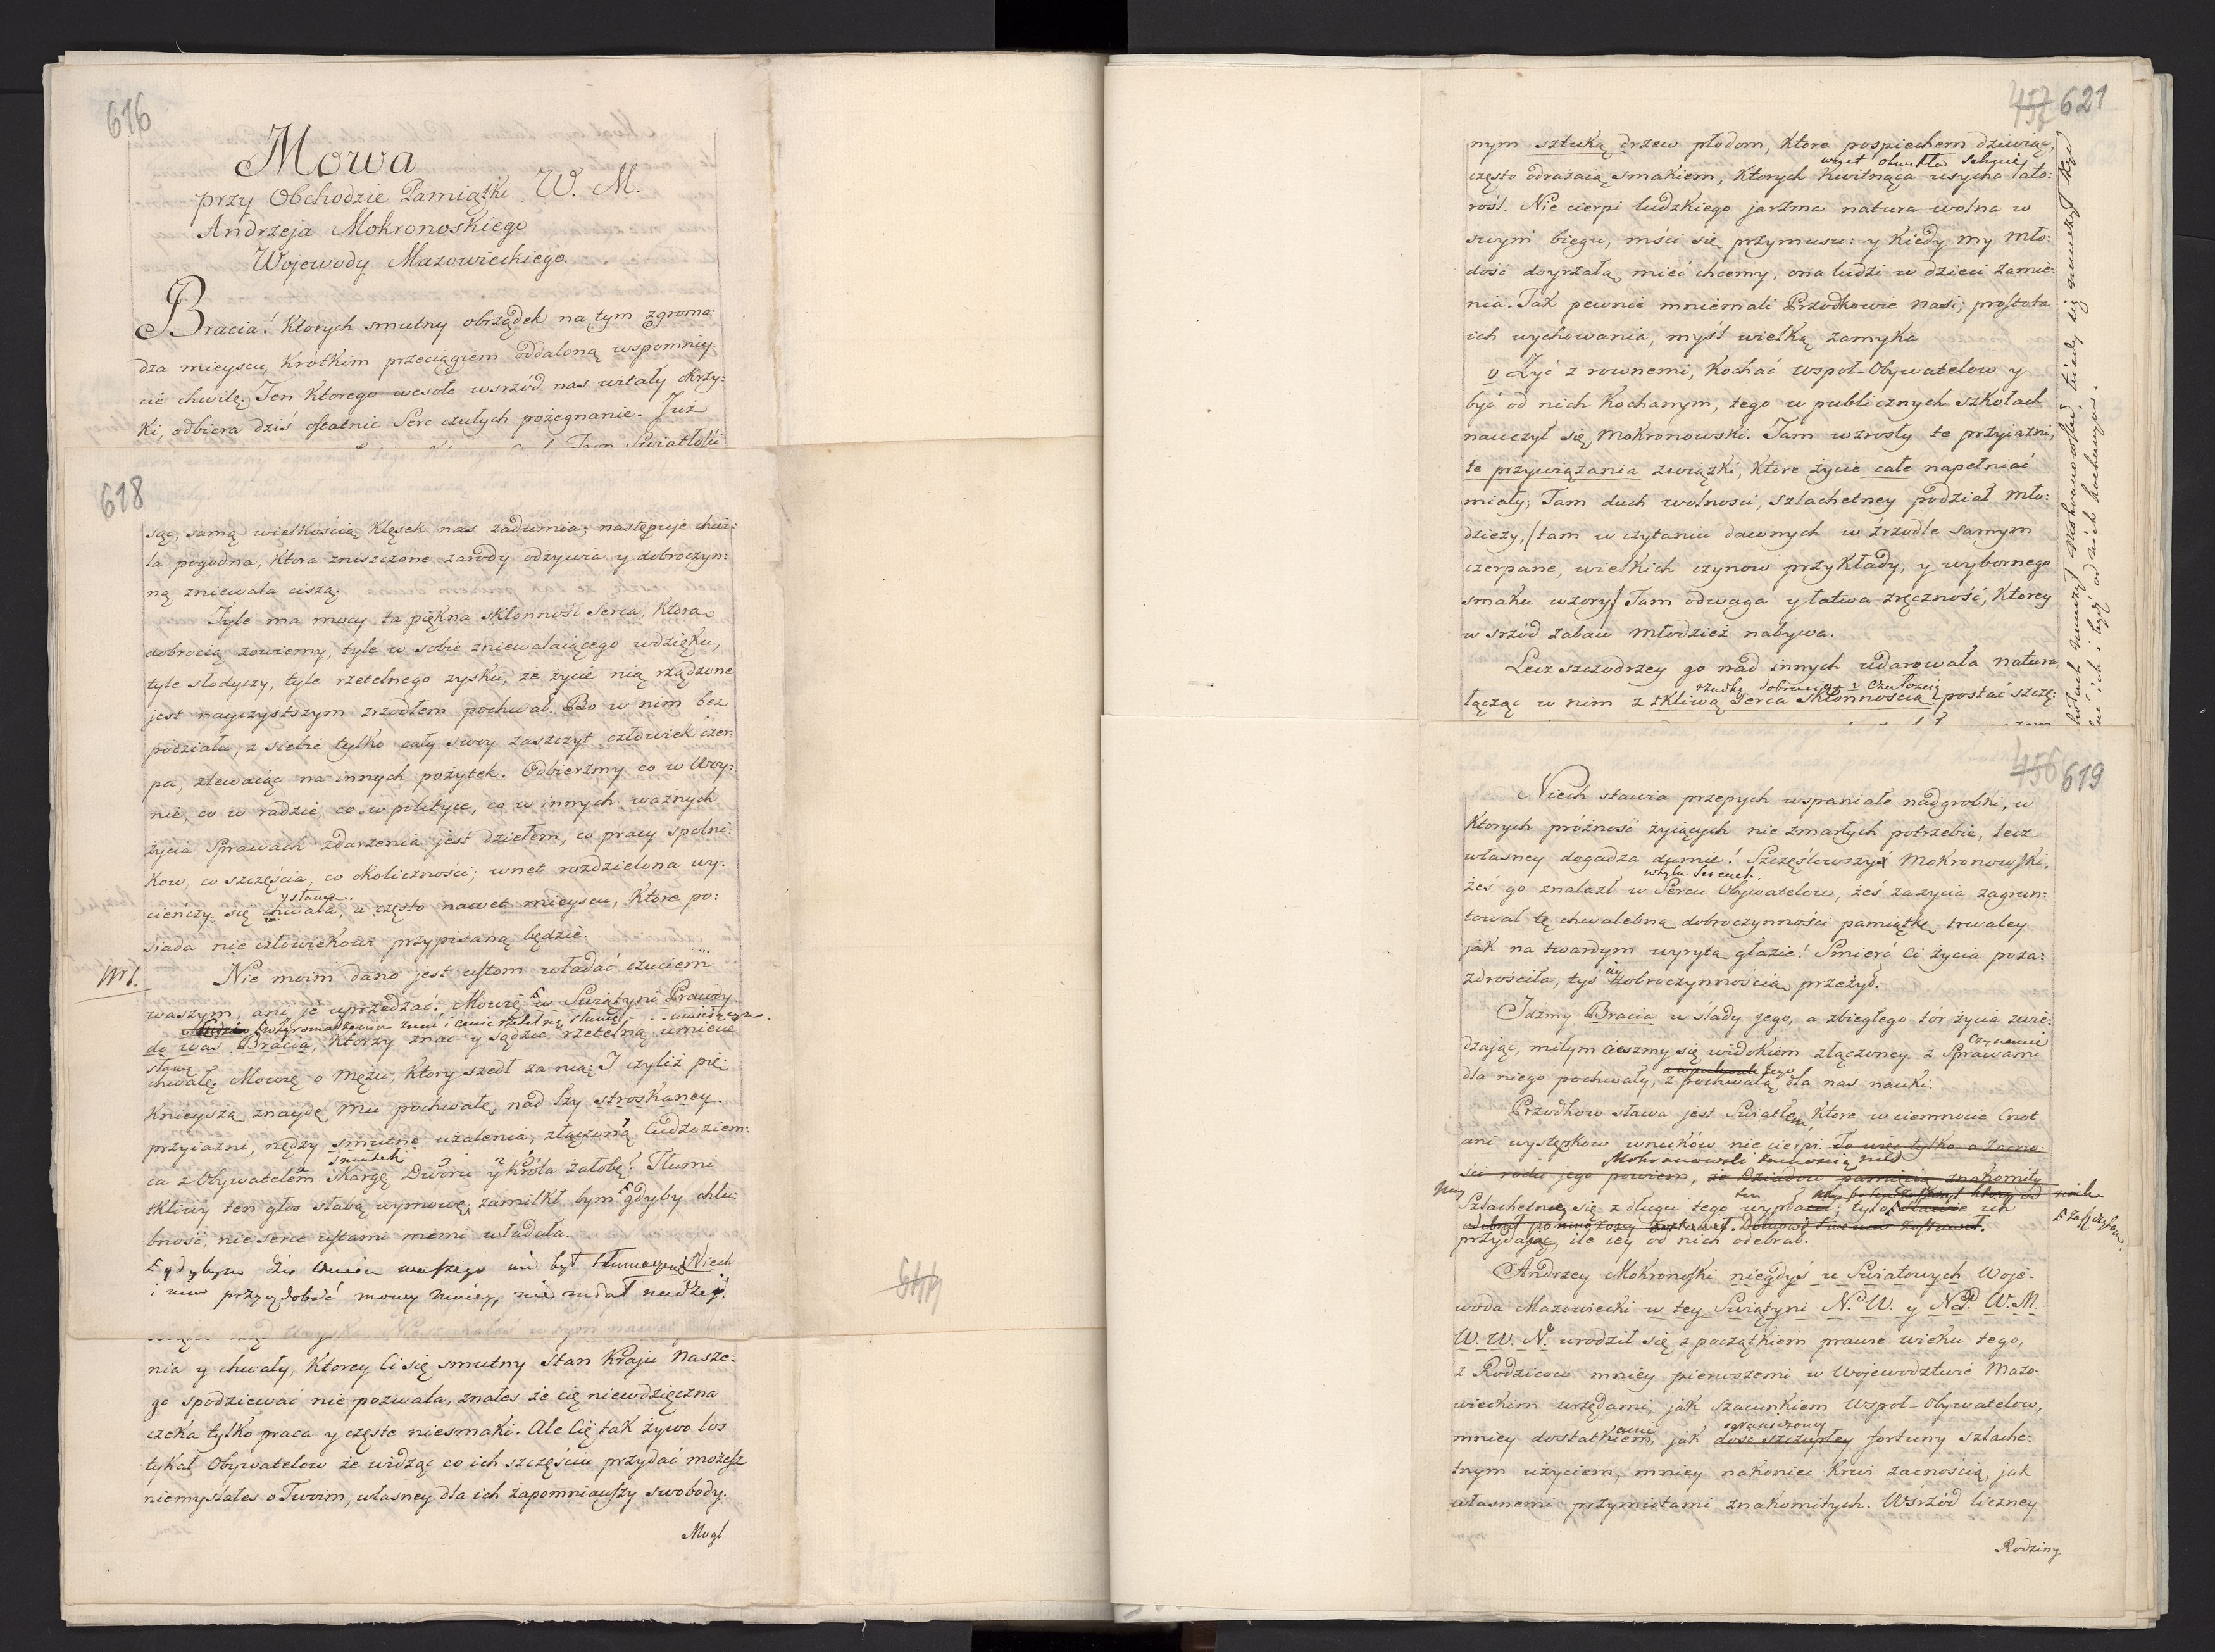 616
Mowa
przy Obchodzie Pamiątki W. M.
Andrzeja Mokronoskiego
Wojewody Mazowieckiego.
Bracia! Ktorych smutny obrządek na tym zgroma:
dza mieyscu, Krótkim przeciągiem oddaloną wspomniy:
cie chwilę. Ten Ktorego wesołe wsrzód nas witały okrzy:
ki, odbiera dziś ostatnie Serc czułych pożegnanie. Już
618
sąc, samą wielkością Klęsek nas zadumia; następuje chwi:
la pogodna, Ktora zniszczone zarody odżywia y dobroczyn:
ną zniewala ciszą.
Tyle ma mocy ta piękna skłonność Serca, Ktora
dobrocią zowiemy, tyle w sobie zniewalaiącego wdzięku,
tyle słodyczy, tyle rzetelnego zysku, że życie nią rządzone
jest nayczystszym zrzodłem pochwał. Bo w nim bez
podziału, z siebie tylko cały swoy zaszczyt człowiek czer:
pa, zlewaiąc na innych pożytek. Odbierzmy co w Woy:
nie, co w radzie, co w polityce, co w innych ważnych
życia Sprawach zdarzenia jest dziełem, co pracy spolni:
kow, co szczęścia, co okoliczności; wnet rozdzielona wy:
y sława.
cieńczy się chwała, a często nawet mieyscu, Ktore po:
siada nie człowiekowi przypisaną będzie.
Nie moim dano jest ustom władać czuciem
waszym, ani je uprzedzać. Mowię w Swiątyni Prawdy
do was Bracia, Ktorzy znać y sądzić rzetelną umiecie
sławę
chwałę. Mowię o Mężu, Ktory szedł za nią: I czyliż pię:
knieyszą znaydę mu pochwałę, nad łzy stroskaney
przyiaźni, nędzy smutne użalenia, złączoną Cudzoziem:
smutek
ca z Obywatelem Skargę Dworu y Króla żałobę? Tłumi
tkliwy ten głos słabą wymowę; zamilkł bym gdyby chlu:
bność, nie serce ustami memi władała.
gdybym dziś czucia waszego nie był tłumaczem Niech
nia y chwały, Ktorey Ci się smutny stan Kraju Nasze:
go spodziewać nie pozwala, znałeś że cię niewdzięczna
czeka tylko praca y częste niesmaki. Ale Cię tak żywo los
tykał Obywatelow że widząc co ich szczęściu przydać możesz
niemyślałeś o Twoim, własney dla ich zapomniawszy swobody.
Mogł
644
457 621
nym sztuką drzew płodom, Ktore pospiechem dziwiąc,
często odrażaią smakiem, Ktorych Kwitnąca usycha lato:
rośl. Nie cierpi ludzkiego jarzma natura wolna w
swym biegu, mści się przymusu: y Kiedy my mło:
dość doyrzałą mieć chcemy, ona ludzi w dzieci zamie:
nia. Tak pewnie mniemali Przodkowie nasi; prostota
ich wychowania, myśl wielką zamyka
Żyć z rownemi, Kochać wspoł-Obywatelow y
być od nich Kochanym, tego w publicznych szkołach
nauczył się Mokronowski. Tam wzrosły te przyiaźni,
te przywiązania związki, Ktore życie całe napełniać
miały; Tam duch wolnosci, szlachetney podział mło:
dzieży, tam w czytaniu dawnych w źrzodle samym
czerpane, wielkich czynow przykłady, y wybornego
smaku wzory; Tam odwaga y łatwa zręczność, Ktorey
w srzód zabaw młodzież nabywa.
Lecz szczodrzey go nad innych udarowała natura,
rzadką dobrocią z czułością
łącząc w nim z tkliwą Serca skłonnością postać szczę:
456 619
Niech stawia przepych wspaniałe nadgrobki, w
Ktorych próżność żyiących nie zmarłych potrzebie, lecz
własney dogadza dumie! Szczęśliwszyś Mokronowski,
wtylu Sercach.
żeś go znalazł w Sercu Obywatelow, żeś zażycia zagrun:
tował tę chwalebną dobroczynności pamiątkę trwaley
jak na twardym wyrytą głazie! Smierć Ci życia poza:
zdrościła, tyś ią dobroczynnością przeżył.
Idźmy Bracia w ślady jego, a zbiegłego tór życia zwie:
czynami
dzając, miłym cieszmy się widokiem złączoney z Sprawami
dla niego pochwały, z pochwałą dla nas nauki.
Przodkow sława jest Swiatłem, Ktore w ciemnocie Cnot
ani występkow wnuków nie cierpi. To więc tylko o zacno:
ści rodu jego powiem, że Dziadow pamięcią znakomity
Szlachetnie się z długu tego wypłacał; tyle sławie ich
przydając, ile iey od nich odebrał.
Andrzey Mokronoski niegdyś w Swiatowych Woje:
woda Mazowiecki w tey Swiątyni N. W. y Nd. W. M.
W. W. N. urodził się z początkiem prawie wieku tego,
z Rodzicow mniey pierwszemi w Wojewodztwie Mazo:
wieckim urzędami, jak szacunkiem Wspoł-Obywatelow,
ograniczoney
mniey dostatkiem, jak dość szczupłey fortuny szlache:
tnym użyciem, mniey nakoniec Krwi zacnością, jak
własnemi przymiotami znakomitych. Wśrzód liczney
Rodziny